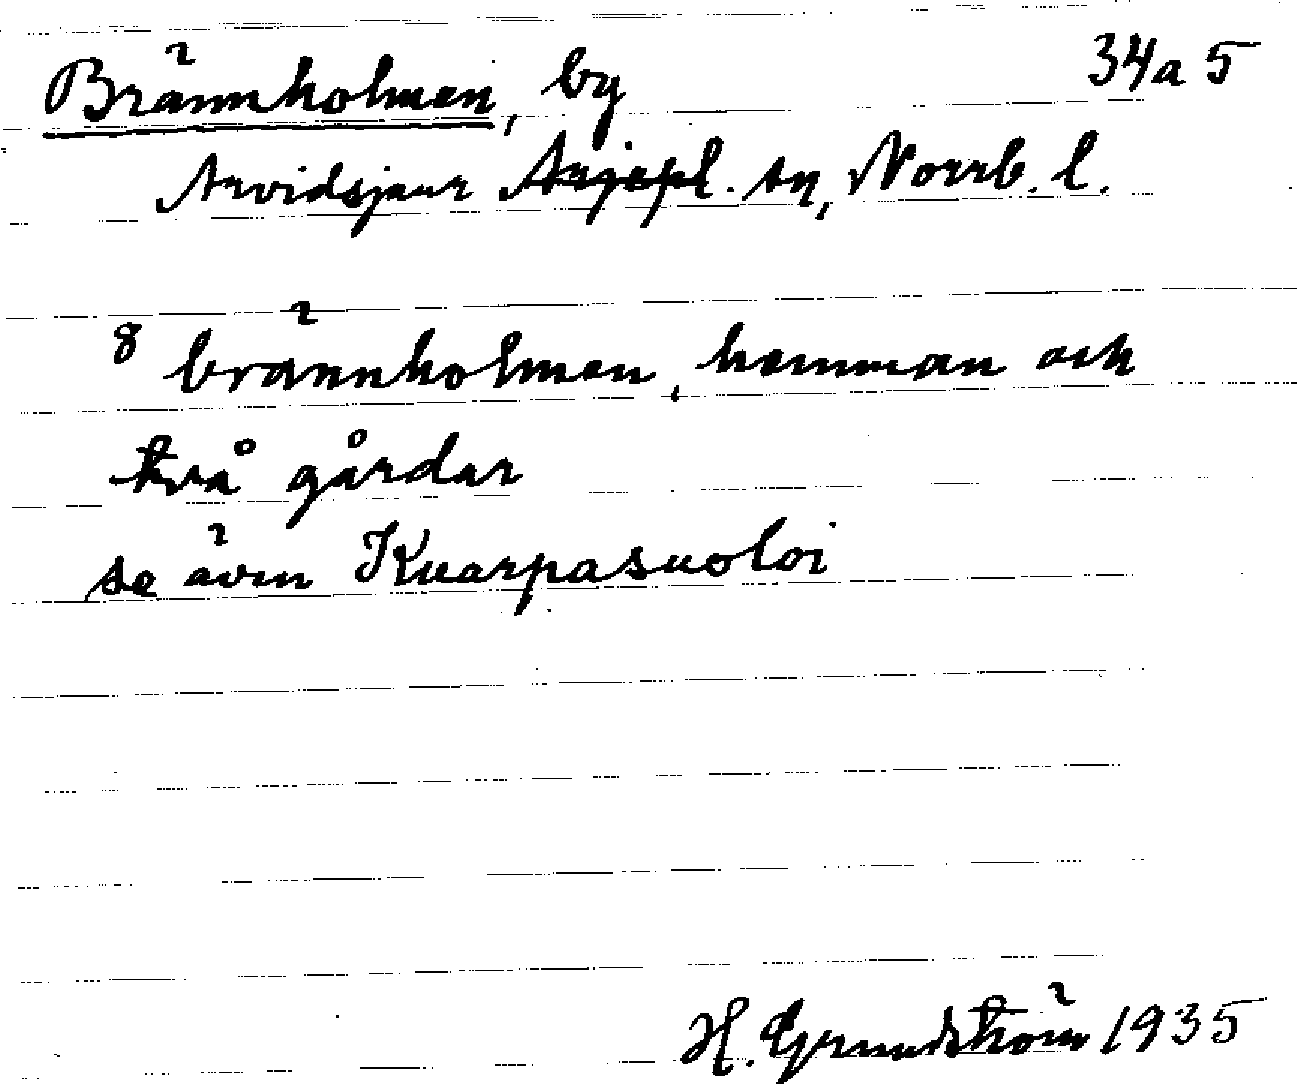 Brännholmen, by 34a 5
Arvidsjaur Arjepl. sn, Norrb. l.
8 brännholmen, hemman och
två gårdar
se även Kuarpasuoloi
H. Grundström 1935